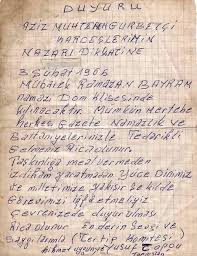 DUYURU
AZİZ MUHTEREM GURBETÇİ
KARDEŞLERİMİN
NAZARI DİKKATİNE
3 Şubat 1965
Mübarek RAMAZAN BAYRAM
namazı Dom klisesinde
kılınacaktır. Mümkün mertebe
herkes Gazete Namazlık ve
Battaniyelerinizle Tedarikli
Gelmeniz Ricaolunur.
Taşkınlığa meal vermeden
izdiham yaratmadan Yüce Dinimiz
ve milletimize yakışır şekilde
Görevimizi ifa etmeliyiz
Çevrenizede duyurulması
Ricaolunur. Enderin Sevgi ve
Saygılarımla (Tertip Komitesi)
Yusuf